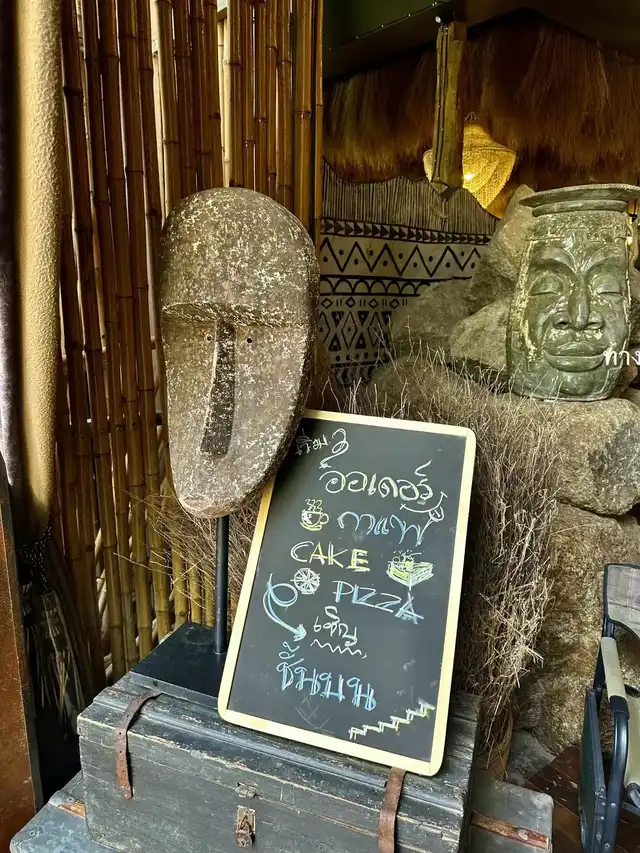 ออเดอร์
กาแฟ
CAKE
PIZZA
เชิญ
ชั้นบน
ทาง